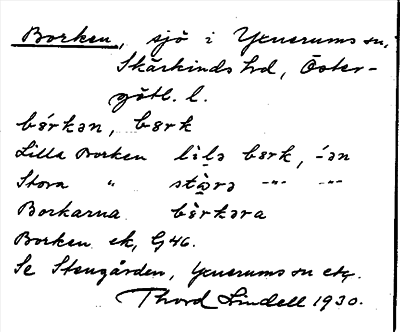 Borken, sjö i Yxnerums sn,
Skärkinds hd, Öster-
götl. l.
bó̤rkən, bɤrk
Lilla Borken lìlə bɤrk, -́ən
Stora " stɔ̀rə -"- -"-
Borkarna bɤ̀rkəra
Borken ek, G46.
Se Stengården, Yxnerums sn etc.
Thord Lindell 1930.